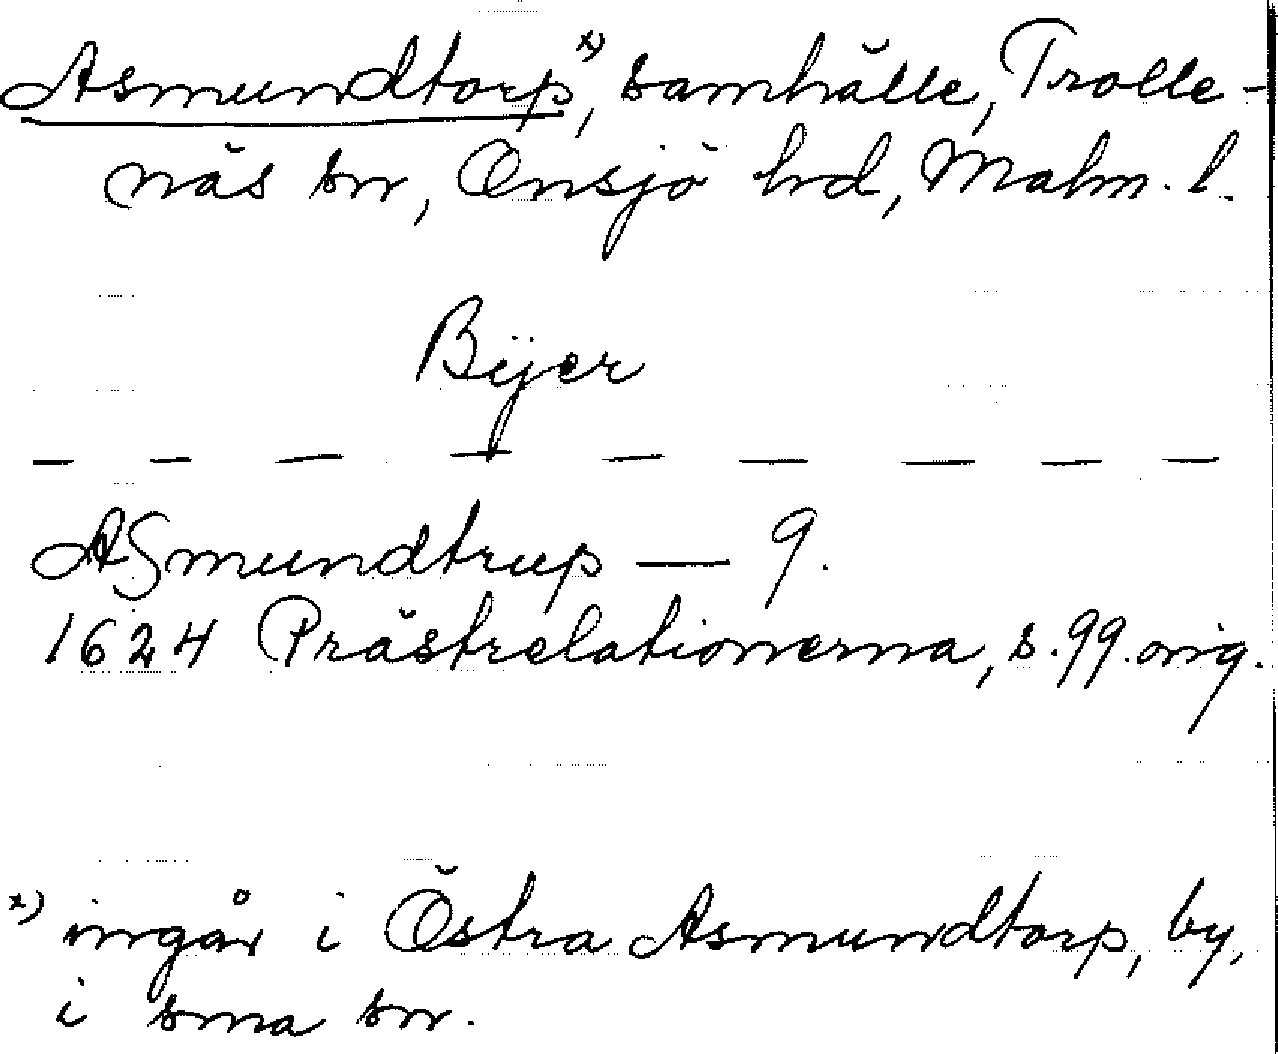 Asmundtorp x), samhälle, Trolle-
näs sn, Onsjö hd, Malm. l.
Bÿer
— — — — — — — — —
ASmundtrup — 9.
1624 Prästrelationerna, s. 99. orig.
x) ingår i Östra Asmundtorp, by,
i sma sn.